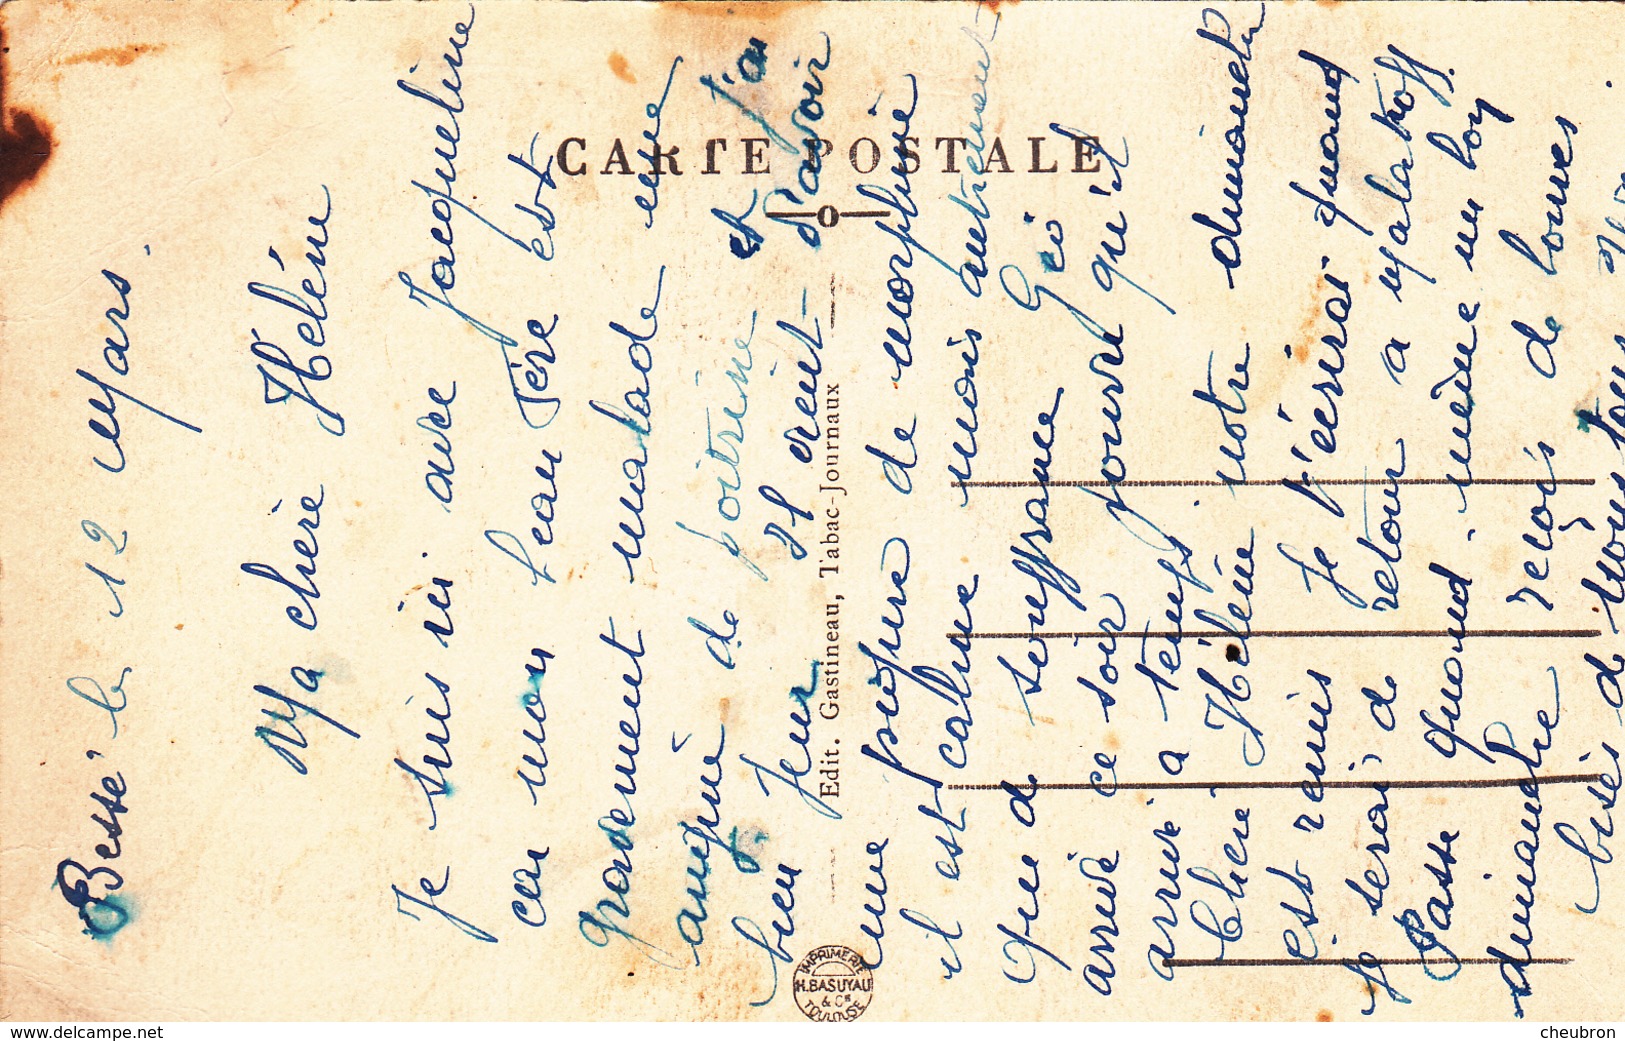 Bessé le 12 Mars.
Ma chère Hélène
Je suis ici avec Jacqueline
car mon beau Père est
gravement malade une
angine de poitrine et j'ai
bien peur Il vient d'avoir
une piqure de morphine
il est calme mais autrement
que de souffrance Géo
arrive ce soir pourvu qu'il
arrive à temps
Chère Hélène notre dimanche
est remis Je t'écrirai quand
je serai de retour à Malakoff.
Passe quand même un bon
dimanche reçois de bonnes
bises de nous tous
CARTE POSTALE
Edit. Gastineau, Tabac-Journaux
IMPRIMERIE
H. BASUYAU
& Cie
TOULOUSE
www.delcampe.net
cheubron